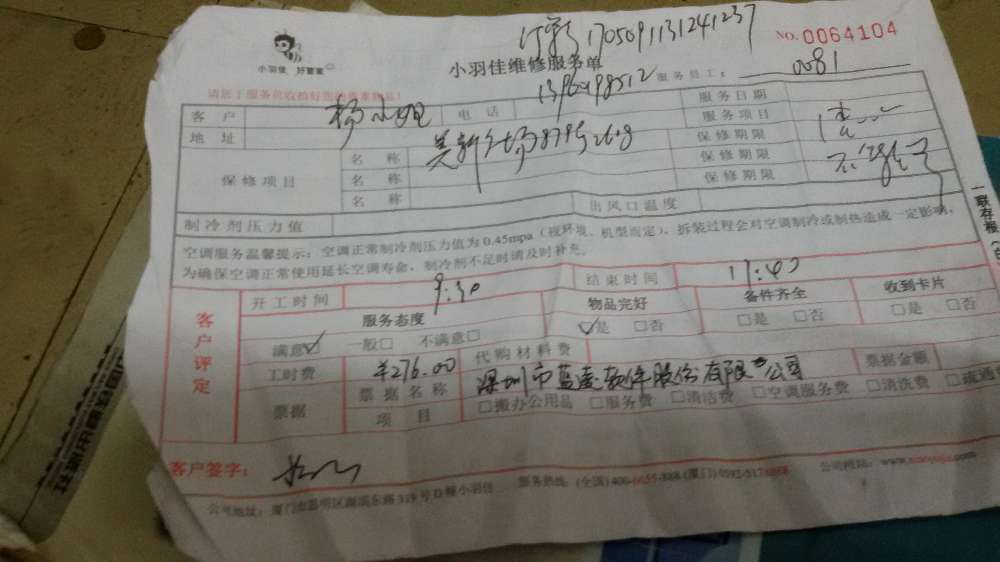 1705091131241237
NO.0064104
小羽佳 好管家
小羽佳维修服务单
服务员工: 0081
客户 杨小姐 电话 服务日期
地址 服务项目
保修项目 名称 保修期限
名称 保修期限
名称 保修期限
制冷剂压力值 出风口温度
空调服务温馨提示:空调正常制冷剂压力值为0.45mpa(视环境、机型而定)、拆装过程会对空调制冷或制热造成一定影响,
为确保空调正常使用延长空调寿命,制冷剂不足时请及时补充。
一联存根
客户评定 开工时间 9:30 结束时间 11:40
服务态度 物品完好 备件齐全 收到卡片
满意☑ 一般□ 不满意□ ☑是 □否 □是 □否 □是 □否
工时费 ¥276.00 代购材料费
票据 票据名称 深圳市蓝凌软件股份有限公司 票据金额
项目 □搬办公用品 □服务费 □清洁费 □空调服务费 □清洗费 □疏通费
客户签字:
公司地址:厦门市思明区湖滨东路319号D幢小羽佳 服务热线:(全国)400-6655-888(厦门)0592-5171
公司网站: